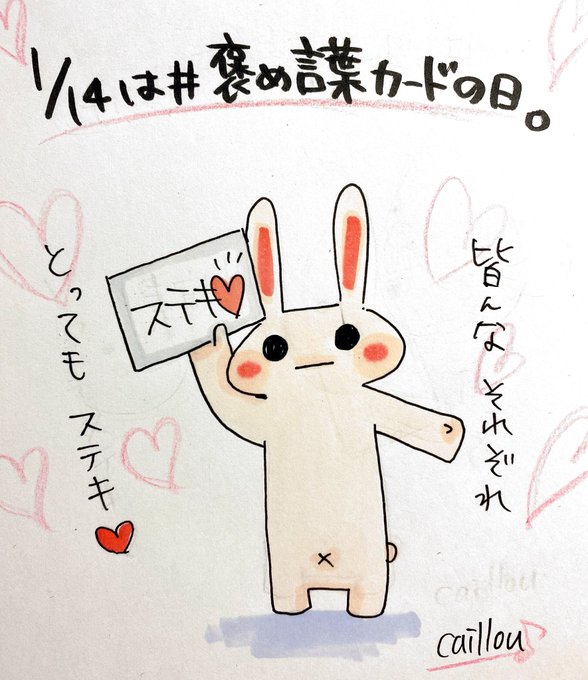 1/14は#褒め言葉カードの日。
皆んな それぞれ
とっても ステキ♥
ステキ♥
caillou♪